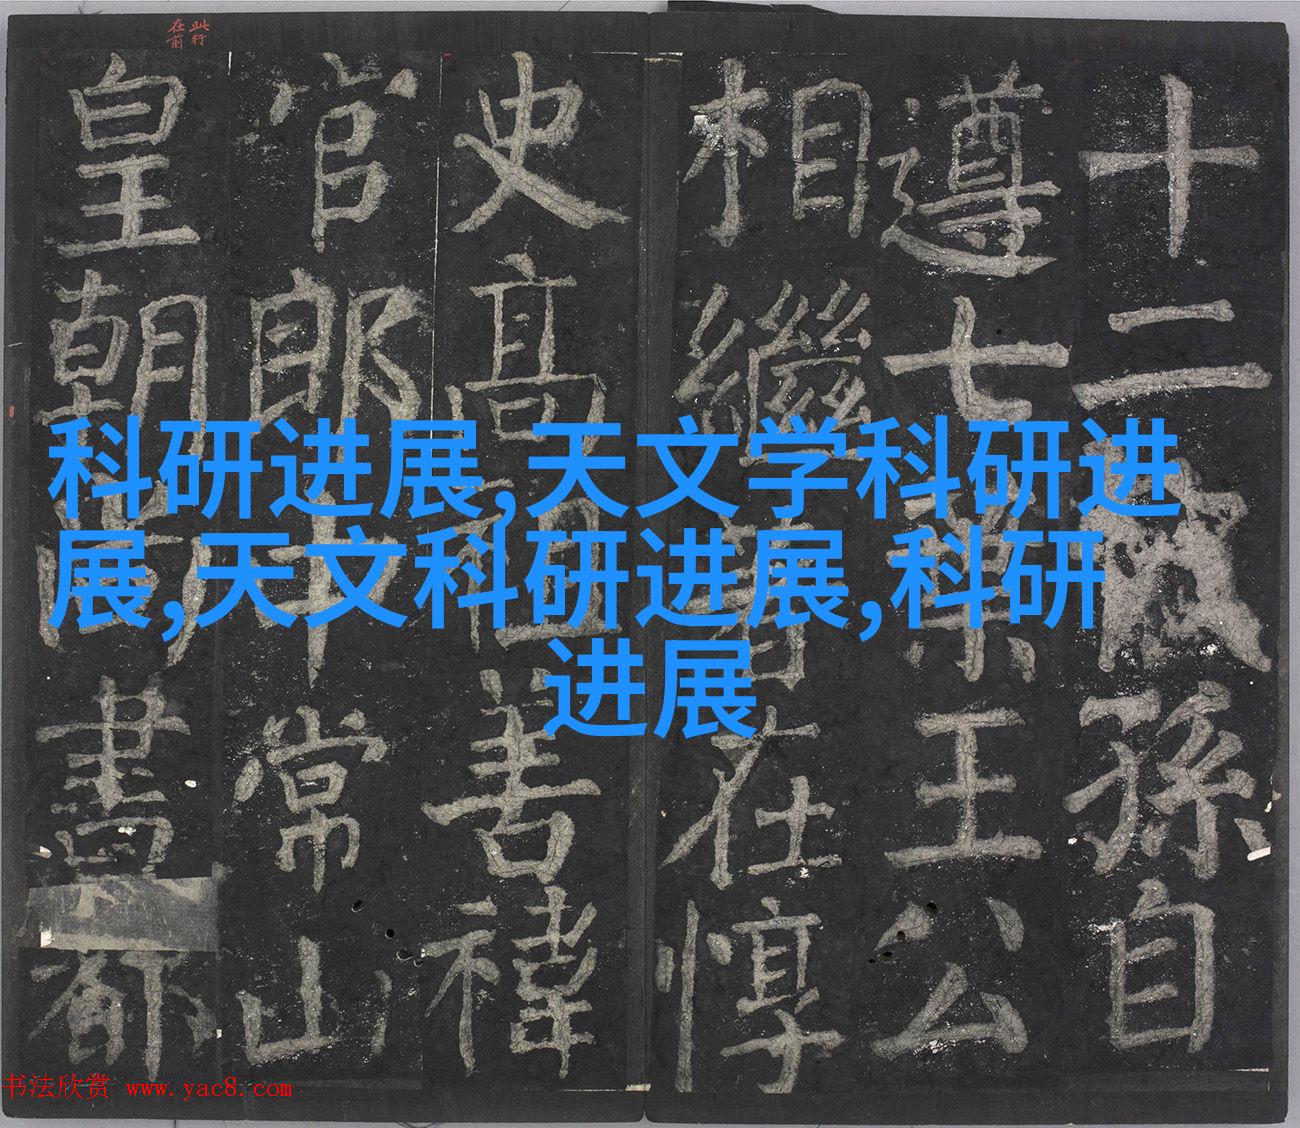 科研进展,天文学科研进
展,天文科研进展,科研
进展
十二孫自
遵七王公
相繼在惇
史高祖禕
官郎中常山
皇朝書都
此行
在前
书法欣赏 www.yac8.com